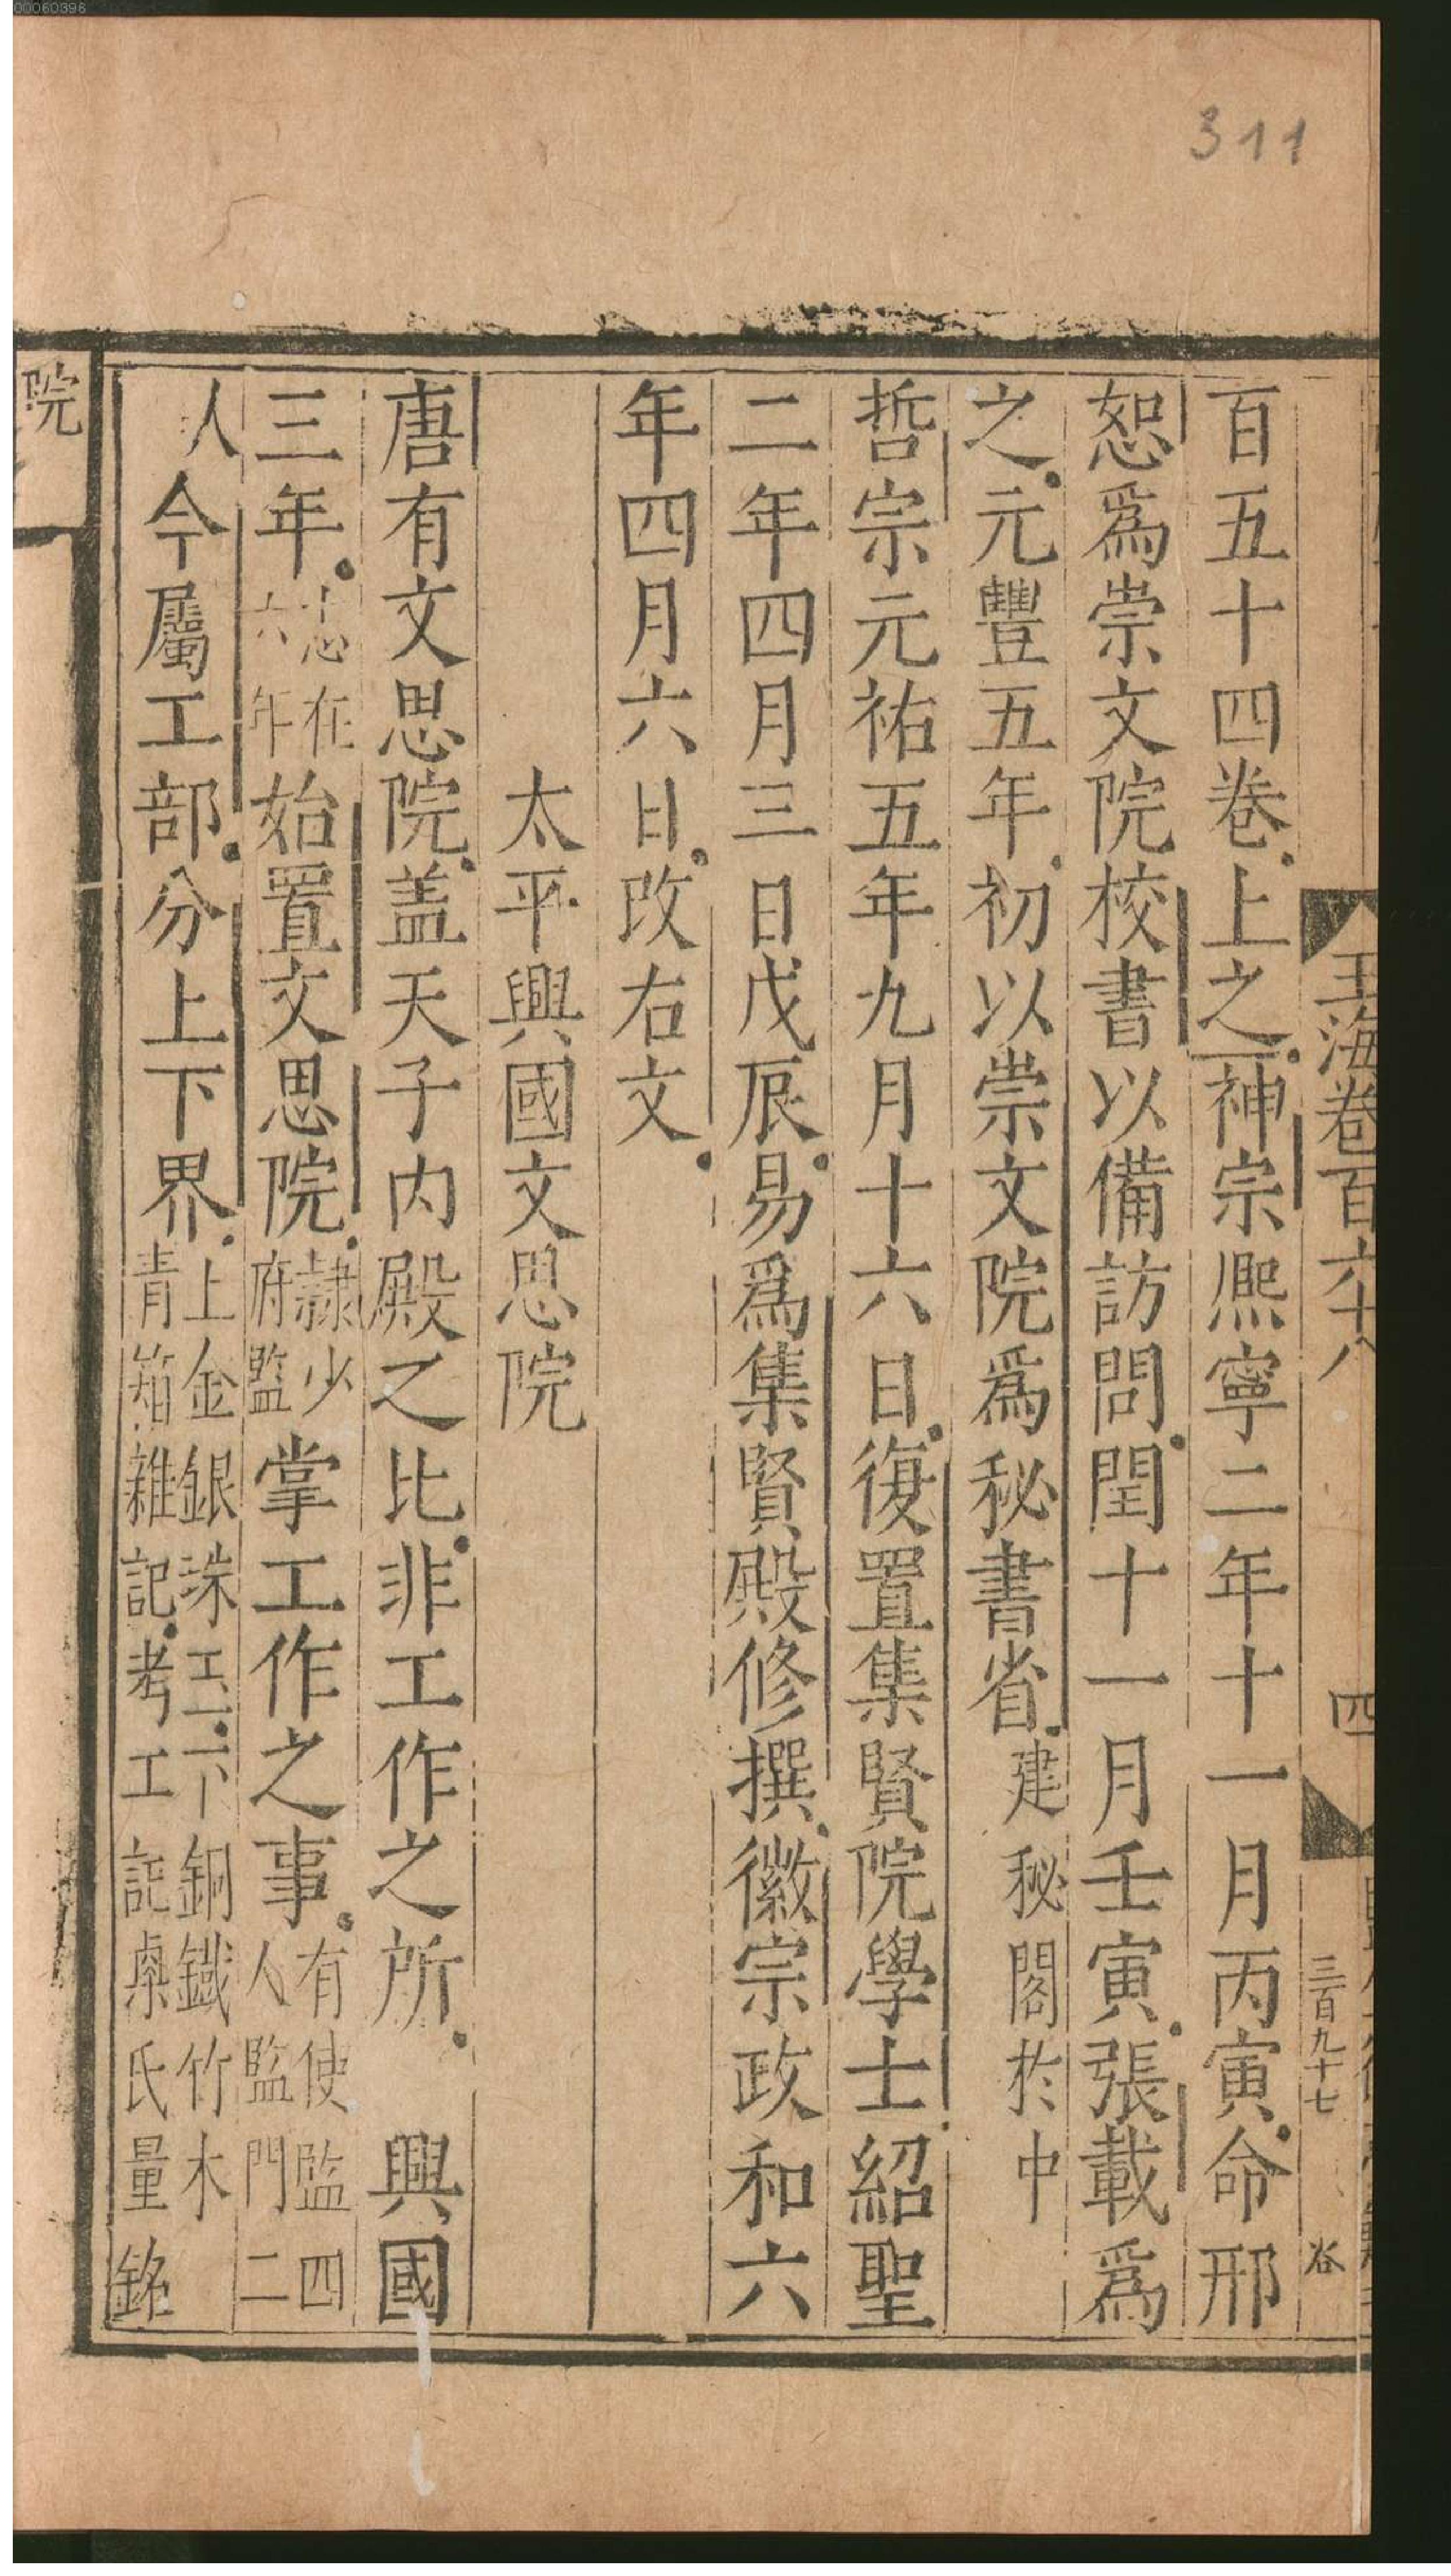 00060396
311
玉海卷百六十八
四
三百九十七
百五十四卷上之神宗熈寧二年十一月丙寅命邢
恕爲崇文院校書以備訪問閏十一月壬寅張載爲
之元豐五年初以崇文院爲秘書省建秘閣於中
哲宗元祐五年九月十六日復置集賢院學士紹聖
二年四月三日戊辰易爲集賢殿修撰徽宗政和六
年四月六日改右文
太平興國文思院
唐有文思院盖天子内殿之比非工作之所 興國
三年志在六年始置文思院隷少府監掌工作之事有使監四人監門二
人今屬工部分上下界上金銀珠玉下銅鐵竹木青箱雜記考工記㮚氏量銘
院